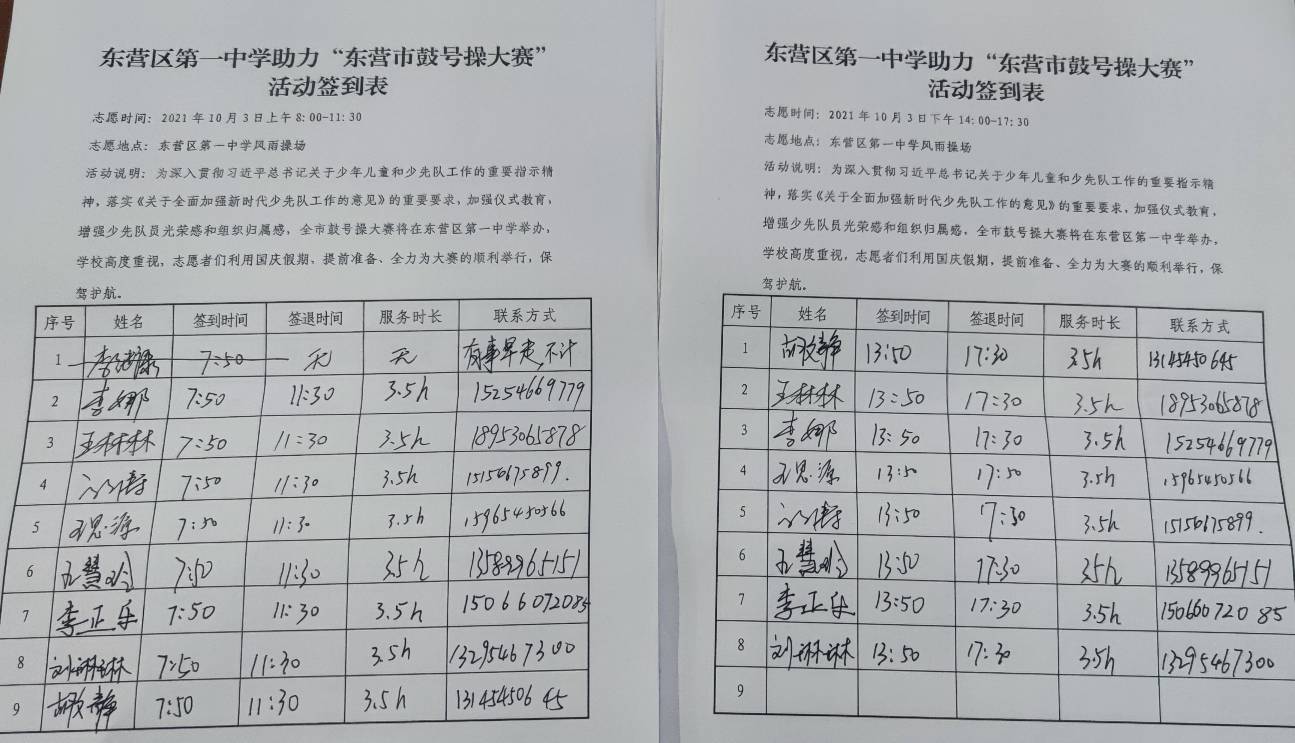 东营区第一中学助力“东营市鼓号操大赛”
活动签到表
志愿时间：2021年10月3日上午8:00-11:30
志愿地点：东营区第一中学风雨操场
活动说明：为深入贯彻习近平总书记关于少年儿童和少先队工作的重要指示精
神，落实《关于全面加强新时代少先队工作的意见》的重要要求，加强仪式教育，
增强少先队员光荣感和组织归属感，全市鼓号操大赛将在东营区第一中学举办，
学校高度重视，志愿者们利用国庆假期、提前准备、全力为大赛的顺利举行，保
驾护航。
序号 姓名 签到时间 签退时间 服务时长 联系方式
1 7:50 无 无 有事早走,不计
2 李娜 7:50 11:30 3.5h 15254669779
3 王林林 7:50 11:30 3.5h 18953065878
4 7:50 11:30 3.5h 15156675899.
5 王思源 7:50 11:30 3.5h 15965450566
6 王慧玲 7:50 11:30 3.5h 13589965151
7 李正乐 7:50 11:30 3.5h 15066072085
8 刘琳琳 7:50 11:30 3.5h 13295467300
9 胡玫静 7:50 11:30 3.5h 13145450645
东营区第一中学助力“东营市鼓号操大赛”
活动签到表
志愿时间：2021年10月3日下午14:00-17:30
志愿地点：东营区第一中学风雨操场
活动说明：为深入贯彻习近平总书记关于少年儿童和少先队工作的重要指示精
神，落实《关于全面加强新时代少先队工作的意见》的重要要求，加强仪式教育，
增强少先队员光荣感和组织归属感，全市鼓号操大赛将在东营区第一中学举办，
学校高度重视，志愿者们利用国庆假期，提前准备、全力为大赛的顺利举行，保
驾护航。
序号 姓名 签到时间 签退时间 服务时长 联系方式
1 胡玫静 13:50 17:30 3.5h 13145450645
2 王林林 13:50 17:30 3.5h 18953065878
3 李娜 13:50 17:30 3.5h 15254669779
4 王思源 13:50 17:30 3.5h 15965450566
5 13:50 17:30 3.5h 15156675899.
6 王慧玲 13:50 17:30 3.5h 13589965151
7 李正乐 13:50 17:30 3.5h 15066072085
8 刘琳琳 13:50 17:30 3.5h 13295467300
9